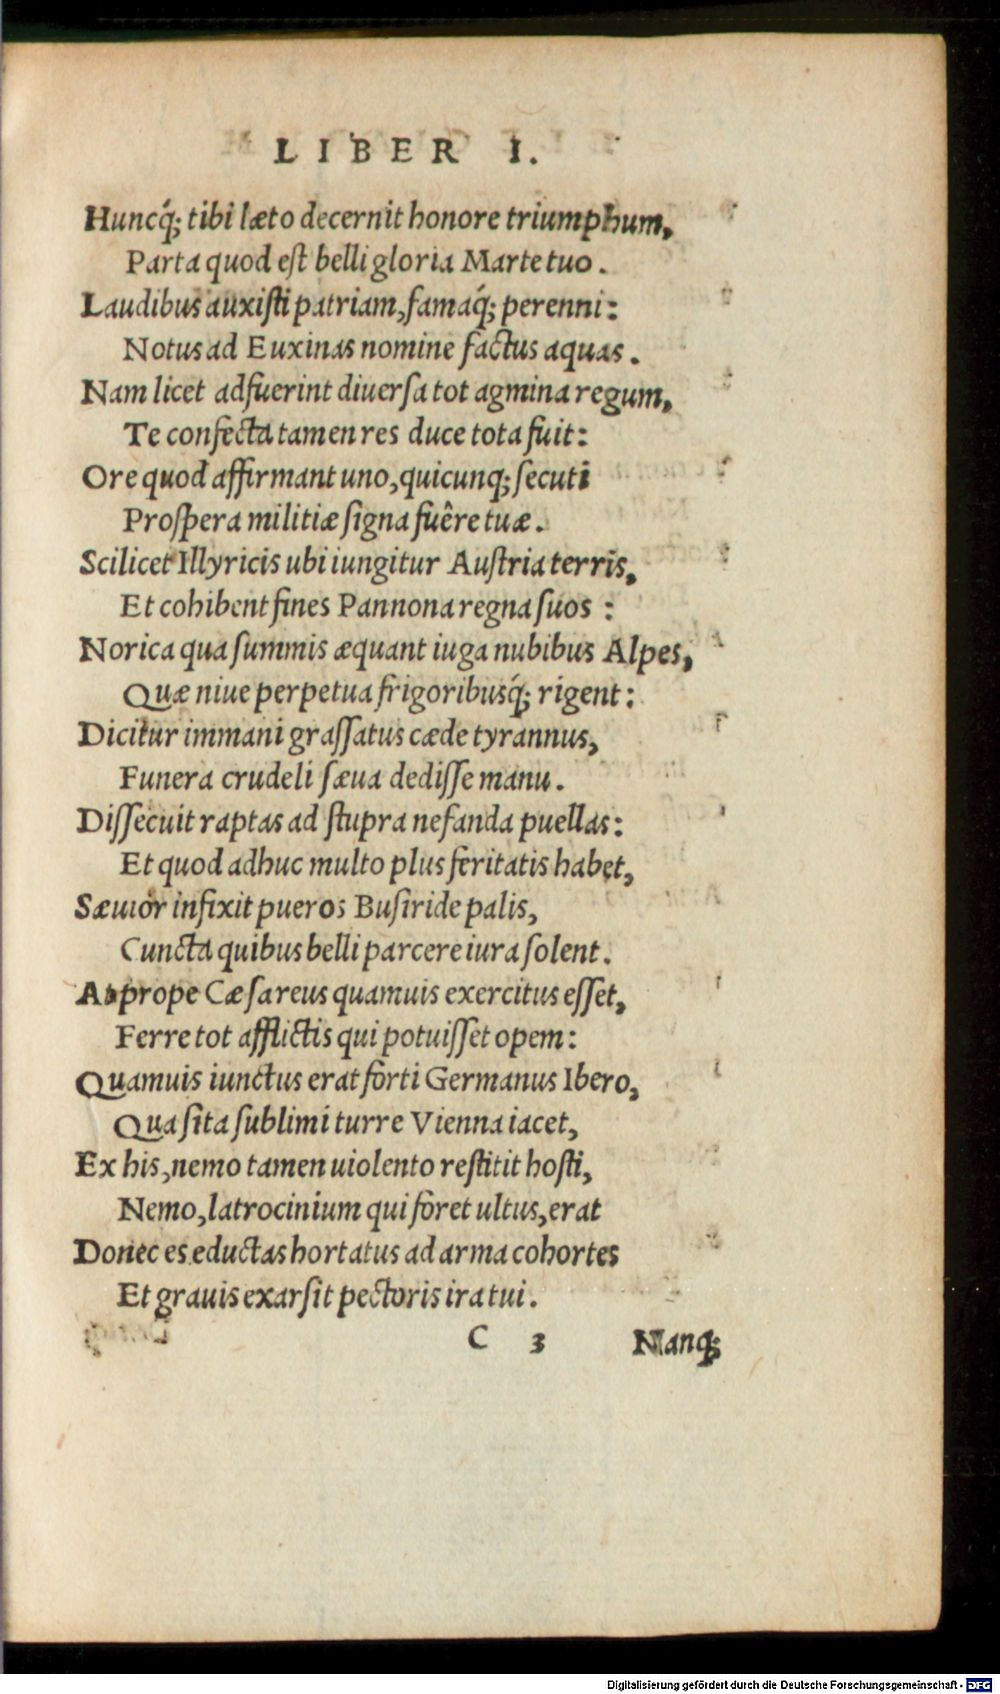 LIBER I.
Huncq́; tibi læto decernit honore triumphum,
Parta quod est belli gloria Marte tuo.
Laudibus auxisti patriam, famaq́; perenni:
Notus ad Euxinas nomine factus aquas.
Nam licet adfuerint diuersa tot agmina regum,
Te confecta tamen res duce tota fuit:
Ore quod affirmant uno, quicunq; secuti
Prospera militiæ signa fuêre tuæ.
Scilicet Illyricis ubi iungitur Austria terris,
Et cohibent fines Pannona regna suos:
Norica qua summis æquant iuga nubibus Alpes,
Quæ niue perpetua frigoribusq́; rigent:
Dicitur immani grassatus cæde tyrannus,
Funera crudeli sæua dedisse manu.
Dissecuit raptas ad stupra nefanda puellas:
Et quod adhuc multo plus feritatis habet,
Sæuior infixit pueros Busiride palis,
Cuncta quibus belli parcere iura solent.
At prope Cæsareus quamuis exercitus esset,
Ferre tot afflictis qui potuisset opem:
Quamuis iunctus erat forti Germanus Ibero,
Qua sita sublimi turre Vienna iacet,
Ex his, nemo tamen uiolento restitit hosti,
Nemo, latrocinium qui foret ultus, erat
Donec es eductas hortatus ad arma cohortes
Et grauis exarsit pectoris ira tui.
C 3 Nanq;
Digitalisierung gefördert durch die Deutsche Forschungsgemeinschaft - DFG